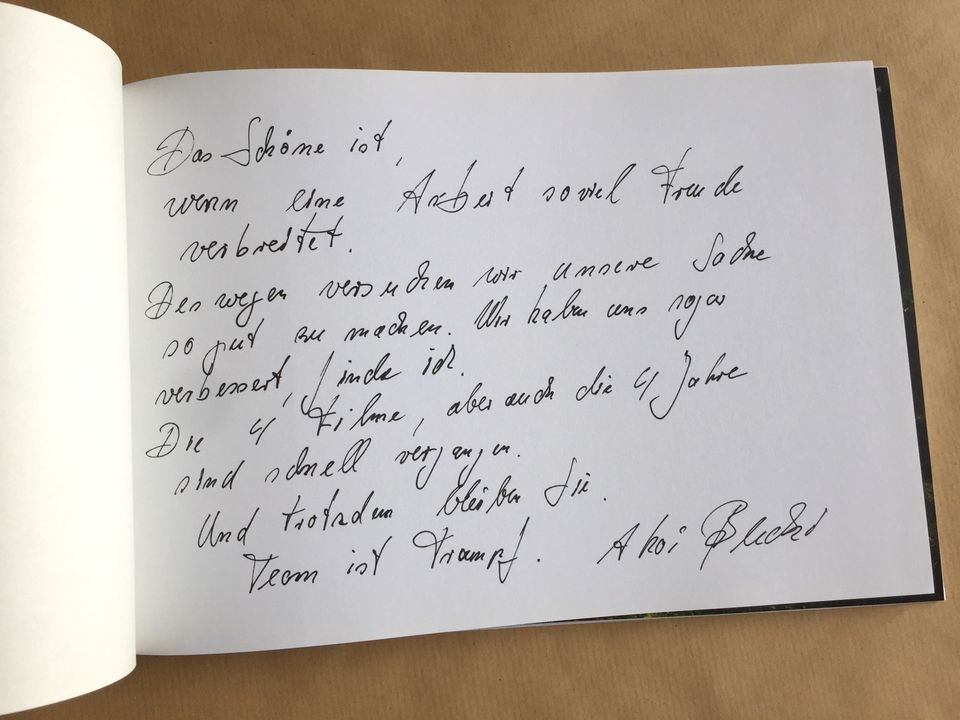 Das Schöne ist,
wenn eine Arbeit soviel Freude
verbreitet.
Deswegen versuchen wir unsere Sache
so gut zu machen. Wir haben uns sogar
verbessert, finde ich.
Die 4 Filme, aber auch die 4 Jahre
sind schnell vergangen.
Und trotzdem bleiben Sie.
Team ist Trumpf. Ahoi